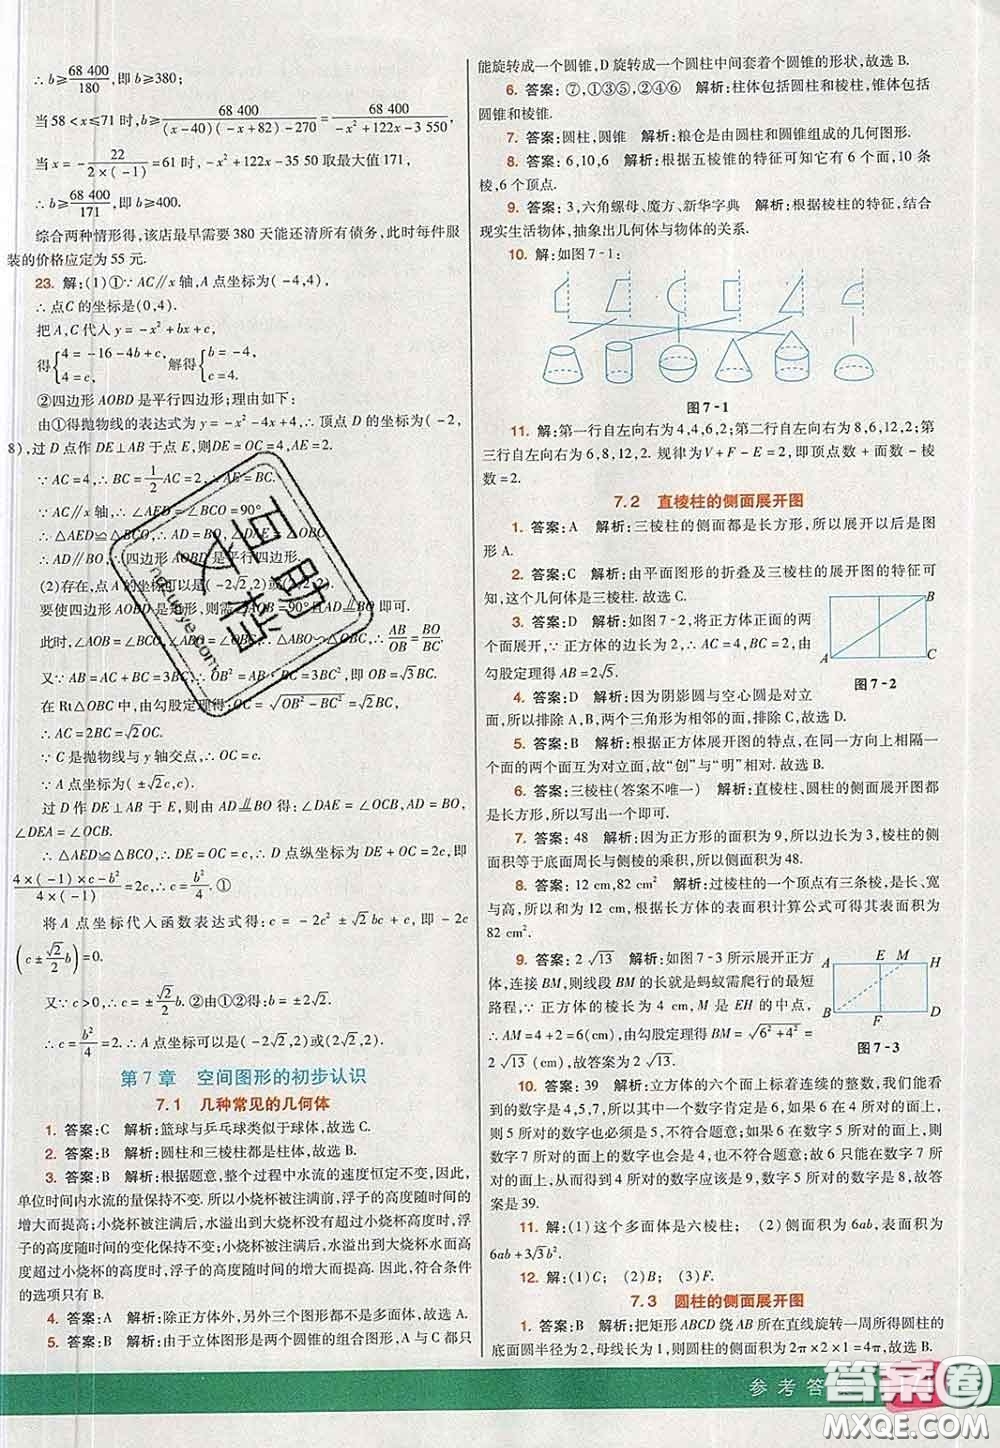 ∴ b≥68 400/180,即 b≥380;
当 58＜x≤71 时,b≥68 400/((x-40)(-x+82)-270)=68 400/(-x²+122x-3 550),
当 x=-22/(2×(-1))=61 时,-x²+122x-35 50 取最大值 171,
∴ b≥68 400/171,即 b≥400.
综合两种情形得,该店最早需要 380 天能还清所有债务,此时每件服
装的价格应定为 55 元.
23. 解:(1)①∵ AC∥x 轴,A 点坐标为(-4,4),
∴ 点C 的坐标是(0,4).
把 A,C 代人 y=-x²+bx+c,
得{4=-16-4b+c, 4=c, 解得{b=-4, c=4.
②四边形 AOBD 是平行四边形;理由如下:
由①得抛物线的表达式为 y=-x²-4x+4,∴ 顶点 D 的坐标为(-2,
8),过 D 点作 DE⊥AB 于点 E,则DE=OC=4,AE=2.
∵ AC=4,∴ BC=1/2 AC=2,∴ AE=BC.
∵ AC∥x 轴,∴ ∠AED=∠BCO=90°
∴ △AED≌△BCO,∴ AD=BO,∠DAE=∠OBC,
∴ AD∥BO,∴ 四边形 AOBD 是平行四边形.
(2)存在,点 A 的坐标可以是(-2√2,2)或(2√2,2).
要使四边形 AOBD 是矩形,则需∠AOB=90°且AD∥BO即可.
此时,∠AOB=∠BCO=90°,∠ABO=∠OBC,∴ △ABO∽△OBC,∴ AB/OB=BO/BC.
又∵ AB=AC+BC=3BC,∴ OB²=AB·BC=3BC²,即 OB=√3BC.
在 Rt△OBC 中,由勾股定理得,OC=√(OB²-BC²)=√2BC,
∴ AC=2BC=√2OC.
∵ C 是抛物线与 y 轴交点,∴ OC=c.
∴ A 点坐标为(±√2c,c).
过 D 作 DE⊥AB 于 E,则由 AD∥BO 得:∠DAE=∠OCB,AD=OB,
∠DEA=∠OCB.
∴ △AED≌△BCO,∴ DE=OC=c,∴ D 点纵坐标为 DE+OC=2c,即
(4×(-1)×c-b²)/(4×(-1))=2c,∴ c=b²/4.①
将 A 点坐标代人函数表达式得:c=-2c²±√2bc+c,即-2c
(c±√2/2 b)=0.
又∵ c＞0,∴ c=±√2/2 b.②∴ b=±2√2.
∴ c=b²/4=2.∴ A 点坐标可以是(-2√2,2)或(2√2,2).
第 7 章 空间图形的初步认识
7.1 几种常见的几何体
1. 答案:C 解析:篮球与乒乓球类似于球体,故选 C.
2. 答案:B 解析:圆柱和三棱柱都是柱体,故选 B.
3. 答案:B 解析:根据题意,整个过程中水流的速度恒定不变,因此,
单位时间内水流的量保持不变.所以小烧杯被注满前,浮子的高度随时间的
增大而提高;小烧杯被注满时,水溢出到大烧杯没有与小烧杯相平时,浮
子的高度随时间的变化保持不变;小烧杯被注满时,水溢出到大烧杯的高
度超过小烧杯的高度时,浮子的高度随时间的增大而提高,因此,符合条件
的选项只有 B.
4. 答案:A 解析:除正方体外,另外三个图形都不是多面体,故选 A.
5. 答案:B 解析:由于立体图形是两个圆锥的组合图形,A 和 C 都只
能旋转成一个圆锥,D 旋转成一个圆柱中间套着个圆锥的形状,故选 B.
6. 答案:⑦,①③⑤,②④⑥ 解析:柱体包括圆柱和棱柱,锥体包括
圆锥和棱锥.
7. 答案:圆柱,圆锥 解析:粮仓是由圆柱和圆锥组成的几何图形.
8. 答案:6,10,6 解析:根据五棱锥的特征可知它有 6 个面,10 条
棱,6 个顶点.
9. 答案:3,六角螺母、魔方、新华字典 解析:根据棱柱的特征,结合
现实生活物体,抽象出几何体与物体的关系.
10. 解:如图 7-1:
图 7-1
11. 解:第一行自左向右为 4,4,6,2;第二行自左向右为 8,6,12,2,第
三行自左向右为 6,8,12,2. 规律为 V+F-E=2,即顶点数+面数-棱
数=2.
7.2 直棱柱的侧面展开图
1. 答案:A 解析:三棱柱的侧面都是长方形,所以展开以后是图
形 A.
2. 答案:C 解析:由平面图形的折叠及三棱柱的展开图的特征可
知,这个几何体是三棱柱.故选 C.
3. 答案:D 解析:如图 7-2,将正方体正面的
两个面展开,∵ 正方体的棱长为 2,∴ AC=4,BC=2,由
勾股定理得 AB=2√5.
A B C
图 7-2
4. 答案:D 解析:因为阴影圆与空心圆是对立
面,所以排除 A,B,两个三角形为相邻的面,排除 C,故选 D.
5. 答案:B 解析:根据正方体展开图的特点,在同一方向上,相隔一
个面的两个面互为对立面,故“创”与“明”相对.故选 B.
6. 答案:三棱柱(答案不唯一) 解析:直棱柱、圆柱的侧面展开图都
是长方形,所以写出一个即可.
7. 答案:48 解析:因为正方形的面积为 9,所以边长为 3,棱柱的侧
面积等于底面周长与侧棱的乘积,所以侧面积为 48.
8. 答案:12 cm,82 cm² 解析:过棱柱的一个顶点有三条棱,长、宽
与高,所以和为 12 cm,根据长方体的表面积计算公式可得其表面积为
82 cm².
9. 答案:2√13 解析:如图 7-3 所示展开正方
体,连接 BM,则线段 BM 的长就是蚂蚁需爬行的最短
路程,∵ 正方体的棱长为 4 cm,M 是 EH 的中点,
∴ AM=4+2=6(cm),由勾股定理得 BM=√(6²+4²)=
2√13(cm),故答案为 2√13.
A E M H B F D
图 7-3
10. 答案:39 解析:立方体的六个面上标着连续的整数,我们能看
到的数字是 4,5,7,所以数字 6 也会出现,如果 6 在数字 4 所对的面上,
则 5 所对的数字也必须是 5,不符合题意;如果 6 在数字 5 所对的面上,
则数字 4 所对的数字也会是 4,也不符合题意;故 6 只能在数字 7 所
对的面上,所以数字 4 所对的数字应该是 9,数字 5 所对的数字是 8,故答
案是 39.
11. 解:(1)这个多面体是六棱柱; (2)侧面积为 6ab,表面积为
6ab+3√3b².
12. 解:(1)C; (2)B; (3)F.
7.3 圆柱的侧面展开图
1. 答案:B 解析:把矩形 ABCD 绕 AB 所在直线旋转一周所得圆柱
的底面圆半径为 2,母线长为 1,故其侧面积为 2π×2×1=4π,故选 B.
参 考 答
互助文档
hdzuoye.com
答案圈
MXQE.COM